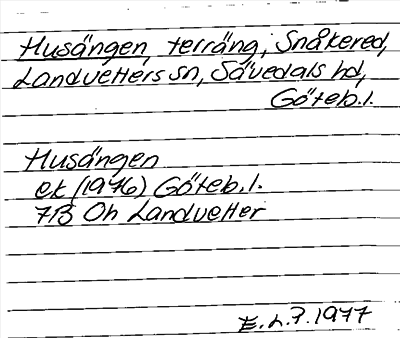 Husängen, terräng, Snåkered,
Landvetters sn, Sävedals hd,
Göteb.l.
Husängen
ek (1976) Göteb.l.
7B 0h Landvetter
E.L.P. 1977